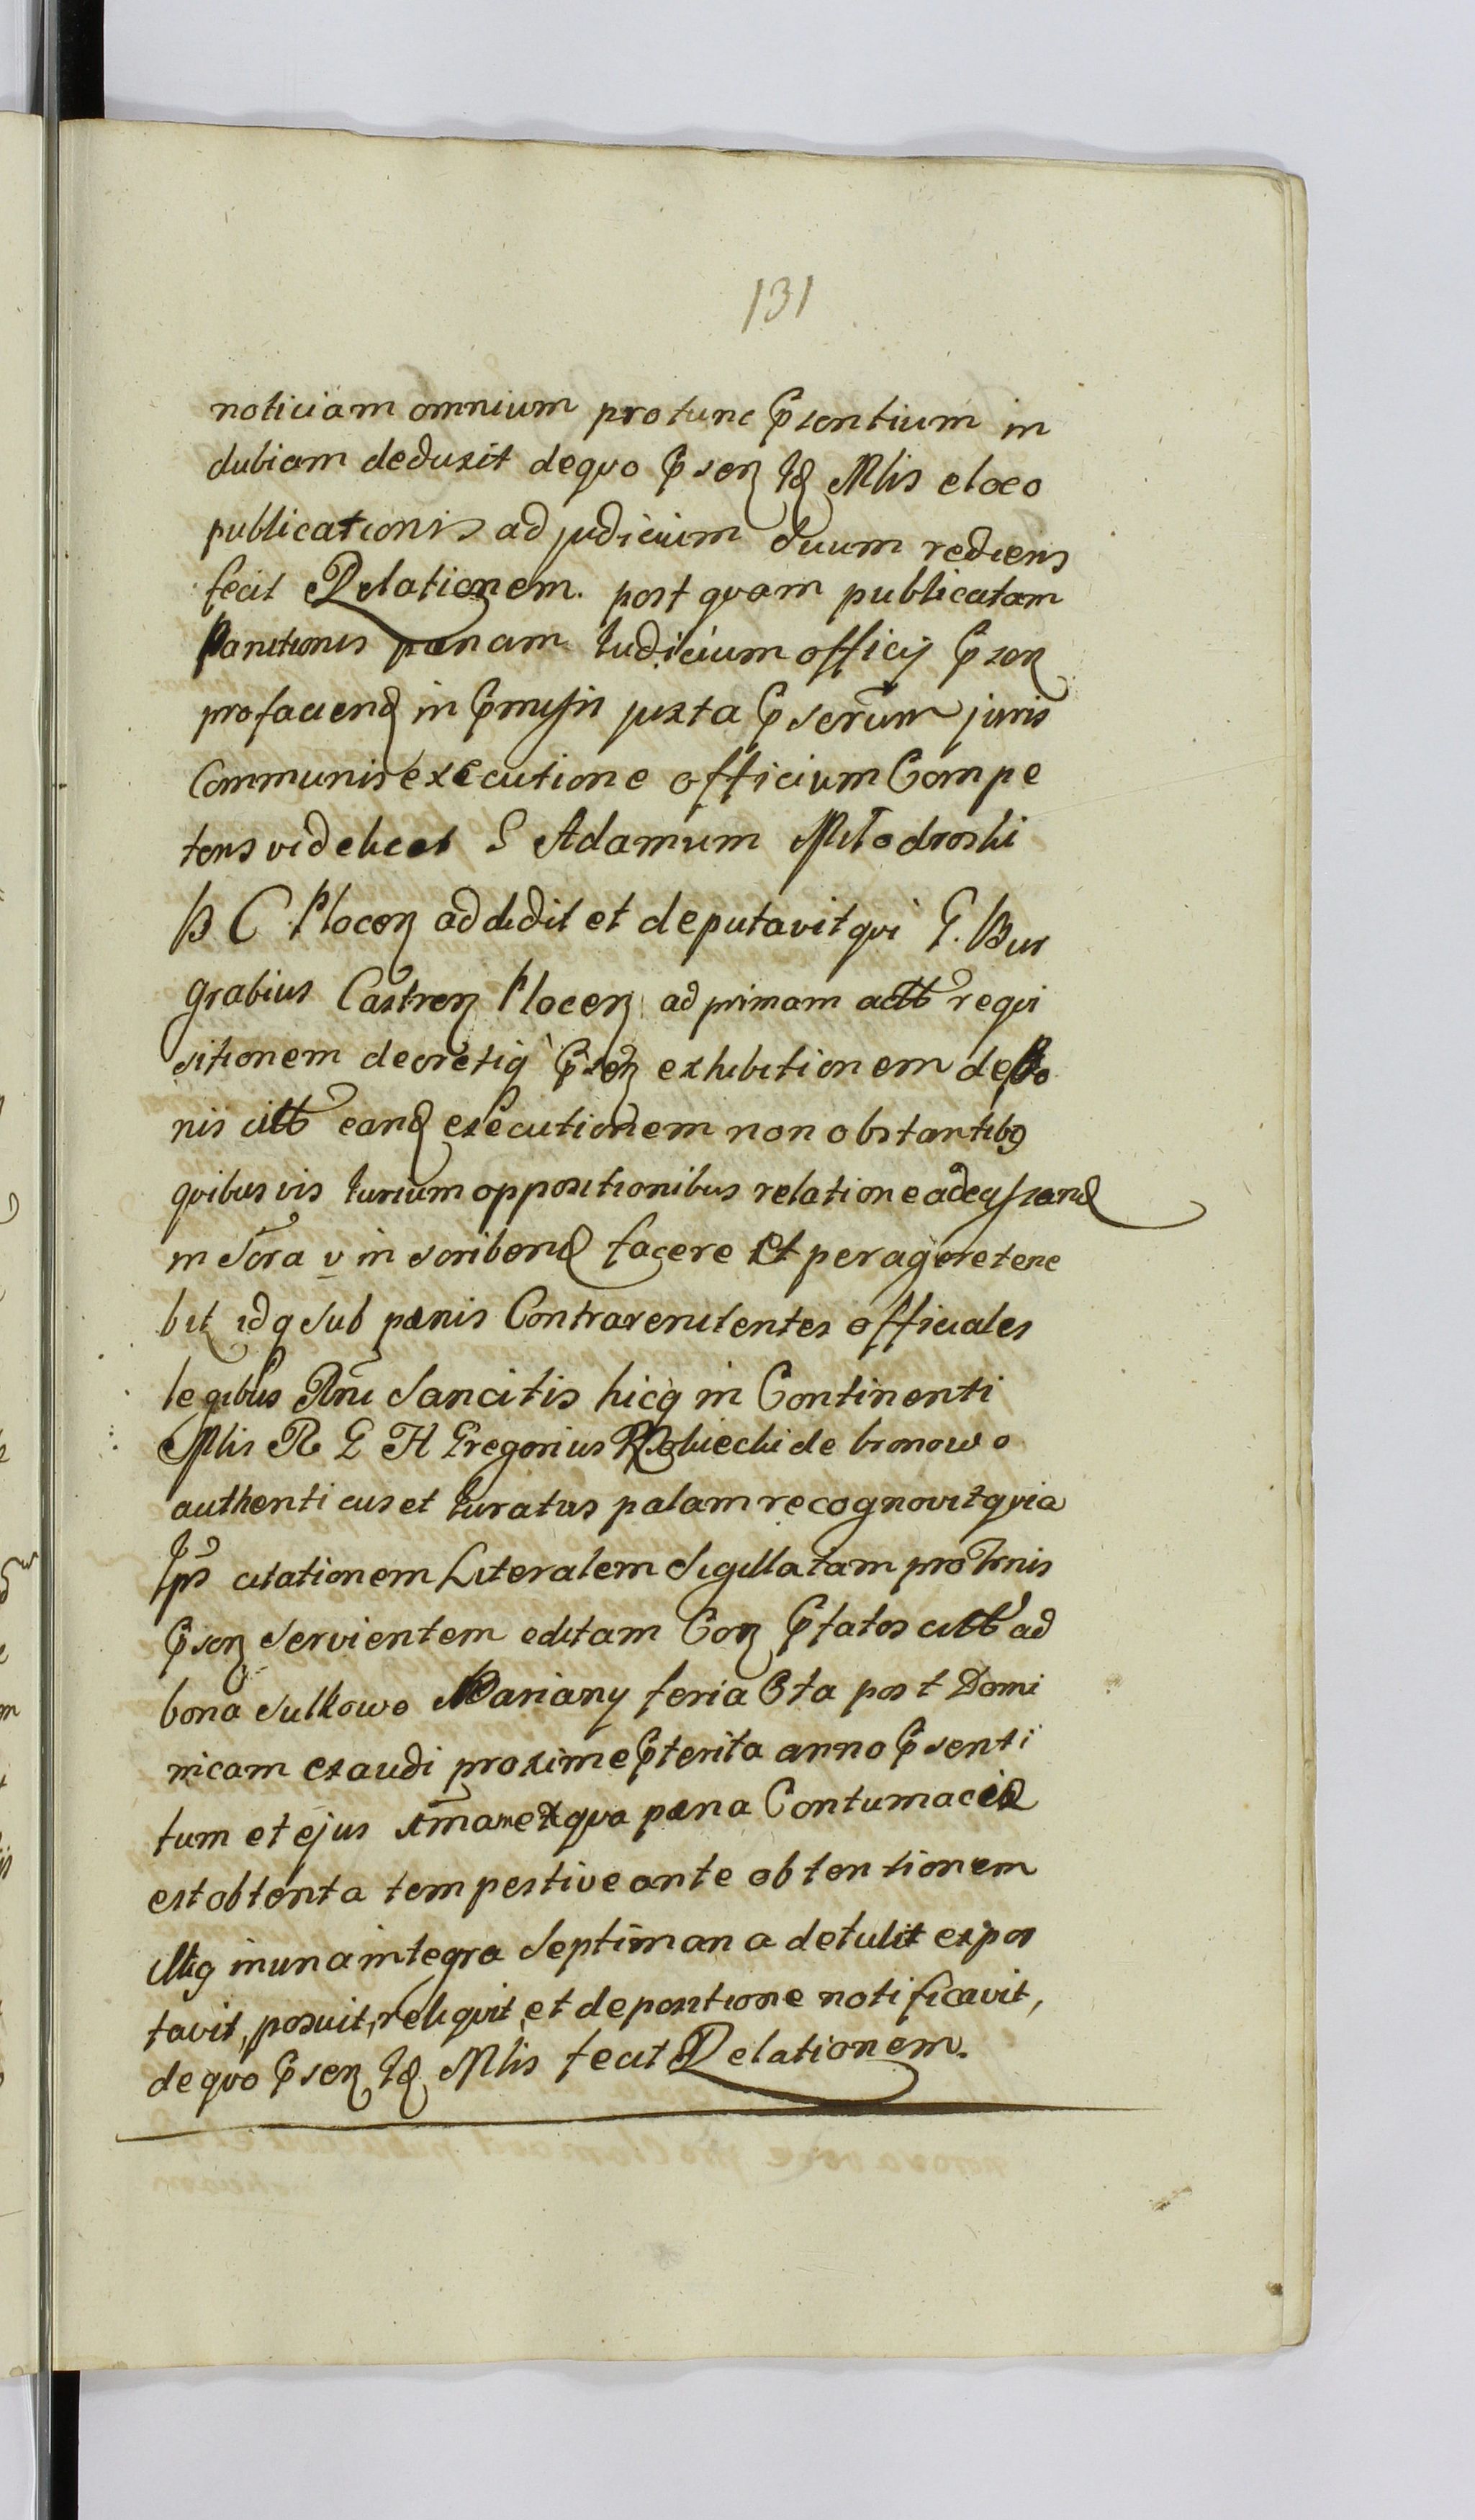 131
noticiam omnium protunc Psentium in
dubiam deduxit dequo Psen Id Mlis eloco
publicationis ad judicium suum rediens
fecit Relationem. post quam publicatam
Panitionis pænam Iudicium officij Psen
profaciend in Pmissis juxta Pserum juris
Communis executione officium Compe
tens videlicet G Adamum Młodroski
B C Plocen addidit et deputavit qui G. Bur
grabius Castren Plocen ad primam actt requi
sitionem decretiq Psen exhibitionem de bo
nis citt eand executionem non obstantibq
quibusvis Iurium oppositionibus relatione adcassand
in Scra v inscribend facere et peragere tene
bit idq sub pænis Contravenientes officiales
legibus Rni Sancitis hicq in Continenti
Mlis R G H Gregorius Robiecki de bronowo
authenticus et Iuratus palam recognovit quia
Ips citationem Literalem Sigillatam pro Tnis
Psen Servientem editam Con Pfatos citt ad
bona Sulkowo Mariany feria 6ta post Domi
nicam exaudi proxime Pterita anno Psenti
tum et ejus smam exqua pæna Contumaciæ
est obtenta tempestive ante obtentionem
illiq in una integra Septimana detulit expor
tavit, posuit, reliquit, et depositione notificavit,
dequo Psen Id Mlis fecit Relationem.